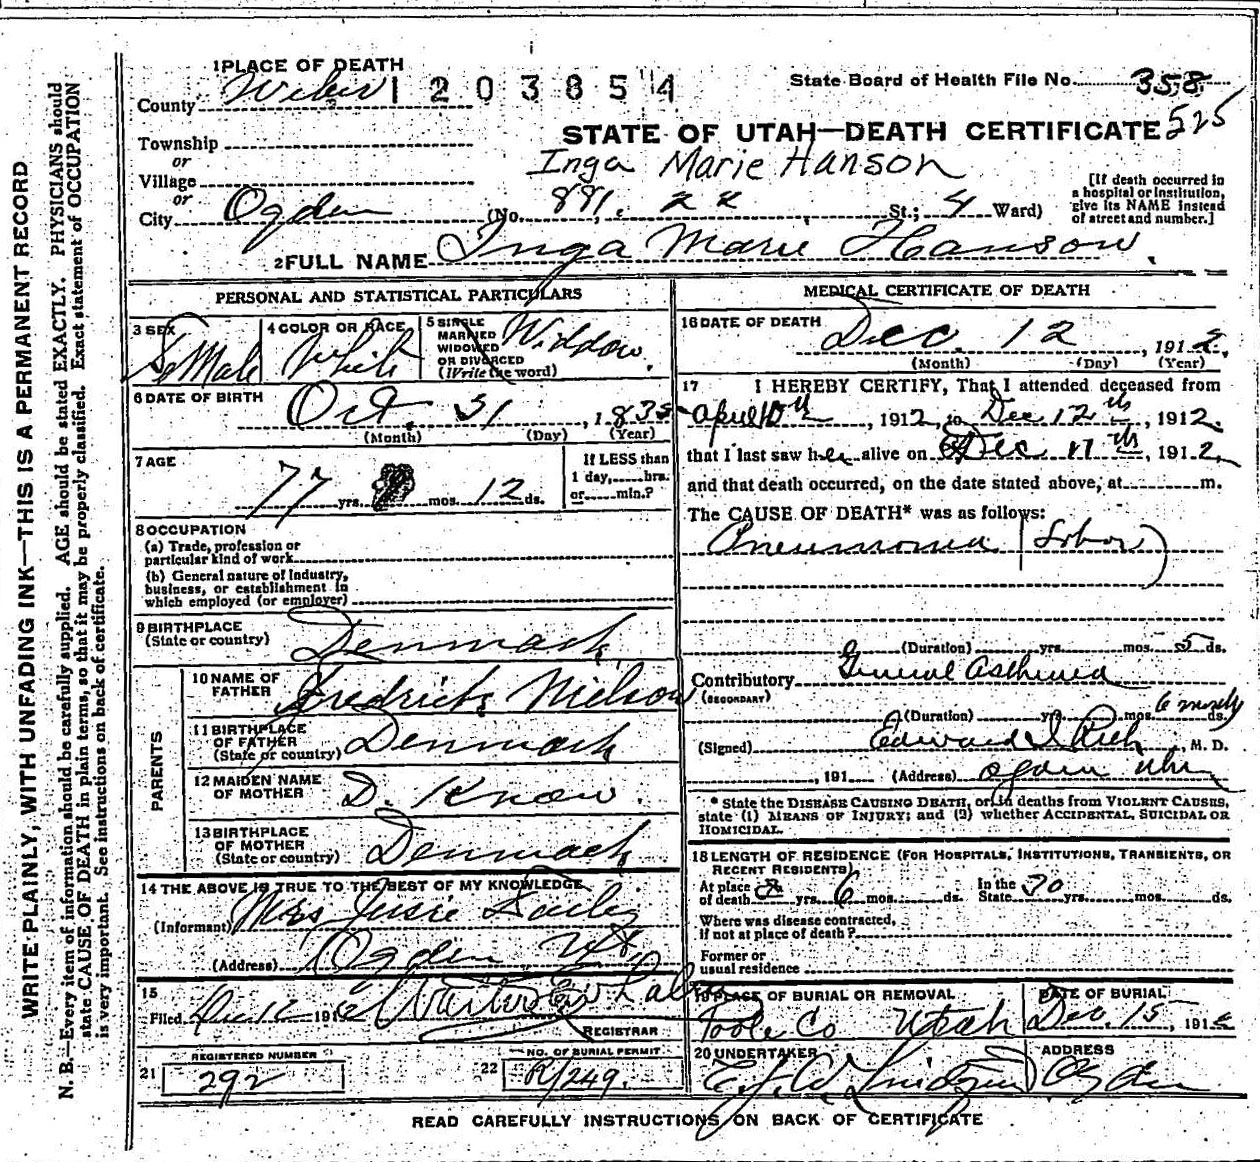 1 PLACE OF DEATH
County Weber 1203854
State Board of Health File No. 358
525
Township
or
Village
or
City Ogden
STATE OF UTAH—DEATH CERTIFICATE
Inga Marie Hanson
(No. 881. 22 St.; 4 Ward)
[If death occurred in a hospital or institution, give its NAME instead of street and number.]
2 FULL NAME Inga Marie Hanson
PERSONAL AND STATISTICAL PARTICULARS
3 SEX
FeMale
4 COLOR OR RACE
White
5 SINGLE
MARRIED
WIDOWED
OR DIVORCED
(Write the word)
Widdow.
6 DATE OF BIRTH
Oct 31, 1835
(Month) (Day) (Year)
7 AGE
77 yrs. mos. 12 ds.
If LESS than
1 day, hrs.
or min.?
8 OCCUPATION
(a) Trade, profession or
particular kind of work
(b) General nature of Industry,
business, or establishment in
which employed (or employer)
9 BIRTHPLACE
(State or country) Denmark
PARENTS
10 NAME OF
FATHER Fredrick Nielson
11 BIRTHPLACE
OF FATHER
(State or country) Denmark
12 MAIDEN NAME
OF MOTHER D. Know.
13 BIRTHPLACE
OF MOTHER
(State or country) Denmark
14 THE ABOVE IS TRUE TO THE BEST OF MY KNOWLEDGE
(Informant) Mrs Jessie
(Address) Ogden Ut.
15
Filed 191
REGISTRAR
REGISTERED NUMBER
21 292
NO. OF BURIAL PERMIT
22 R/249.
MEDICAL CERTIFICATE OF DEATH
16 DATE OF DEATH
Dec. 12, 1912.
(Month) (Day) (Year)
17 I HEREBY CERTIFY, That I attended deceased from
April 10th, 1912, to Dec. 12th, 1912.
that I last saw her alive on Dec. 11th, 1912,
and that death occurred, on the date stated above, at m.
The CAUSE OF DEATH* was as follows:
Pneumonia (Lobar)
(Duration) yrs. mos. 5 ds.
Contributory General Asthenia
(SECONDARY)
(Duration) yrs. mos. 6 months ds.
(Signed) Edward I. Rich, M. D.
, 191 (Address) Ogden Utah
* State the DISEASE CAUSING DEATH, or in deaths from VIOLENT CAUSES,
state (1) MEANS OF INJURY; and (2) whether ACCIDENTAL, SUICIDAL OR
HOMICIDAL.
18 LENGTH OF RESIDENCE (FOR HOSPITALS, INSTITUTIONS, TRANSIENTS, OR
RECENT RESIDENTS)
At place
of death yrs. 6 mos. ds.
In the
State 30 yrs. mos. ds.
Where was disease contracted,
if not at place of death?
Former or
usual residence
19 PLACE OF BURIAL OR REMOVAL
Toole Co Utah
DATE OF BURIAL
Dec. 15, 1912
20 UNDERTAKER
ADDRESS
Ogden
READ CAREFULLY INSTRUCTIONS ON BACK OF CERTIFICATE
WRITE PLAINLY, WITH UNFADING INK—THIS IS A PERMANENT RECORD
N. B.—Every item of information should be carefully supplied. AGE should be stated EXACTLY. PHYSICIANS should
state CAUSE OF DEATH in plain terms, so that it may be properly classified. Exact statement of OCCUPATION
is very important. See instructions on back of certificate.